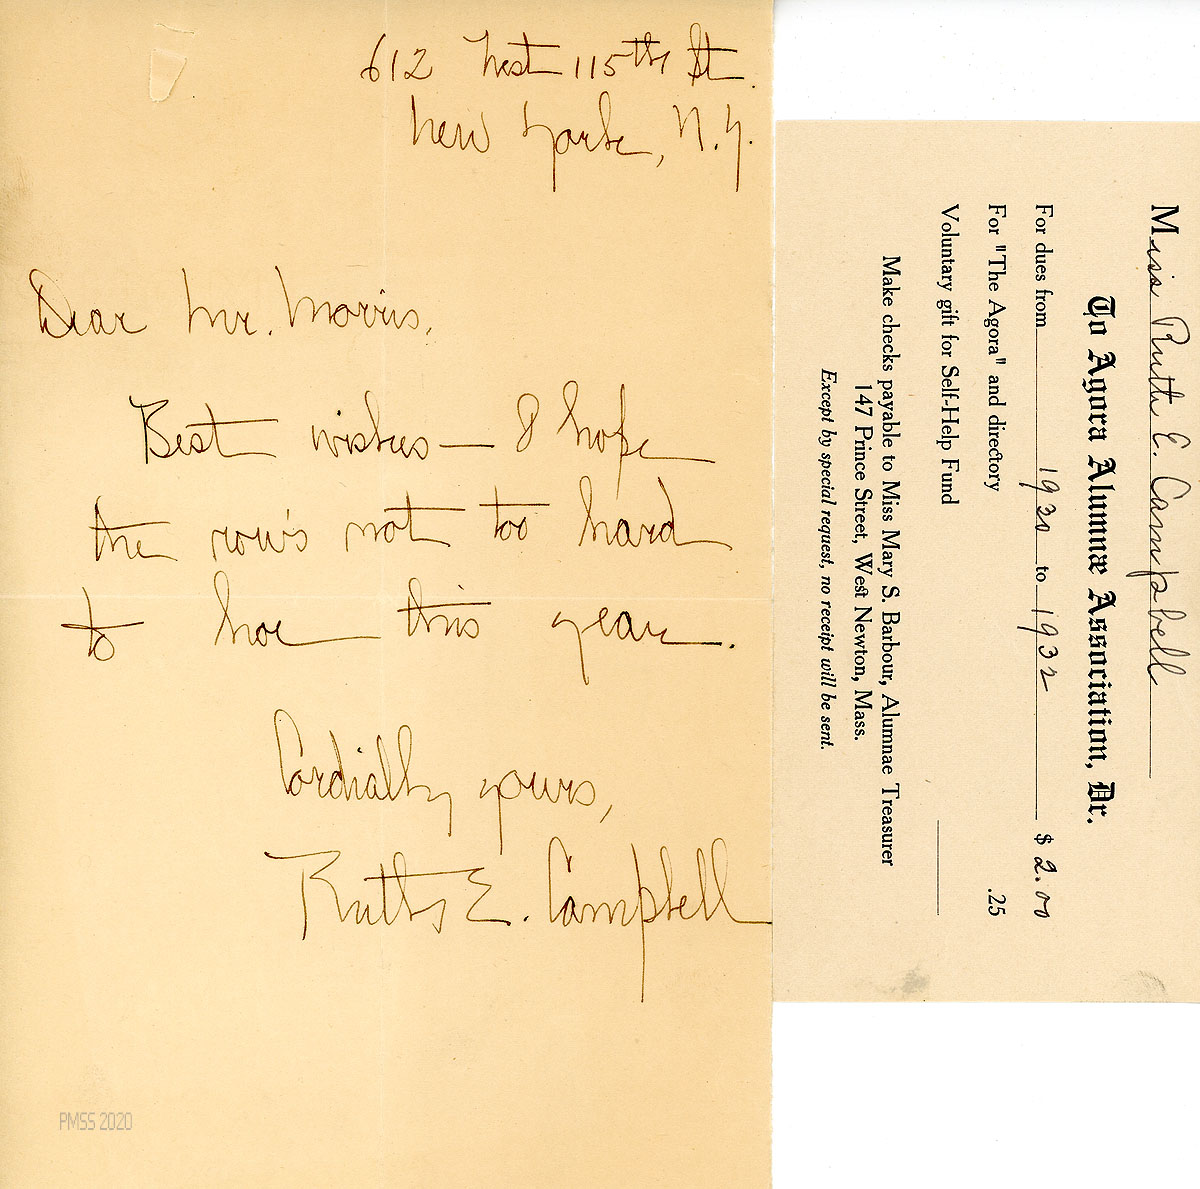 612 West 115th St.
New York, N.Y.
Dear Mr. Morris,
Best wishes — I hope
the row's not too hard
to hoe this year.
Cordially yours,
Ruth E. Campbell
PMSS 2020
Miss Ruth E. Campbell
To Agora Alumnæ Association, Dr.
For dues from 1930 to 1932 $ 2.00
For "The Agora" and directory .25
Voluntary gift for Self-Help Fund
Make checks payable to Miss Mary S. Barbour, Alumnae Treasurer
147 Prince Street, West Newton, Mass.
Except by special request, no receipt will be sent.